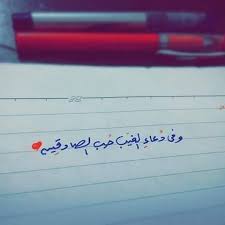 وفي دُعاءِ الغيب حُب الصادقين